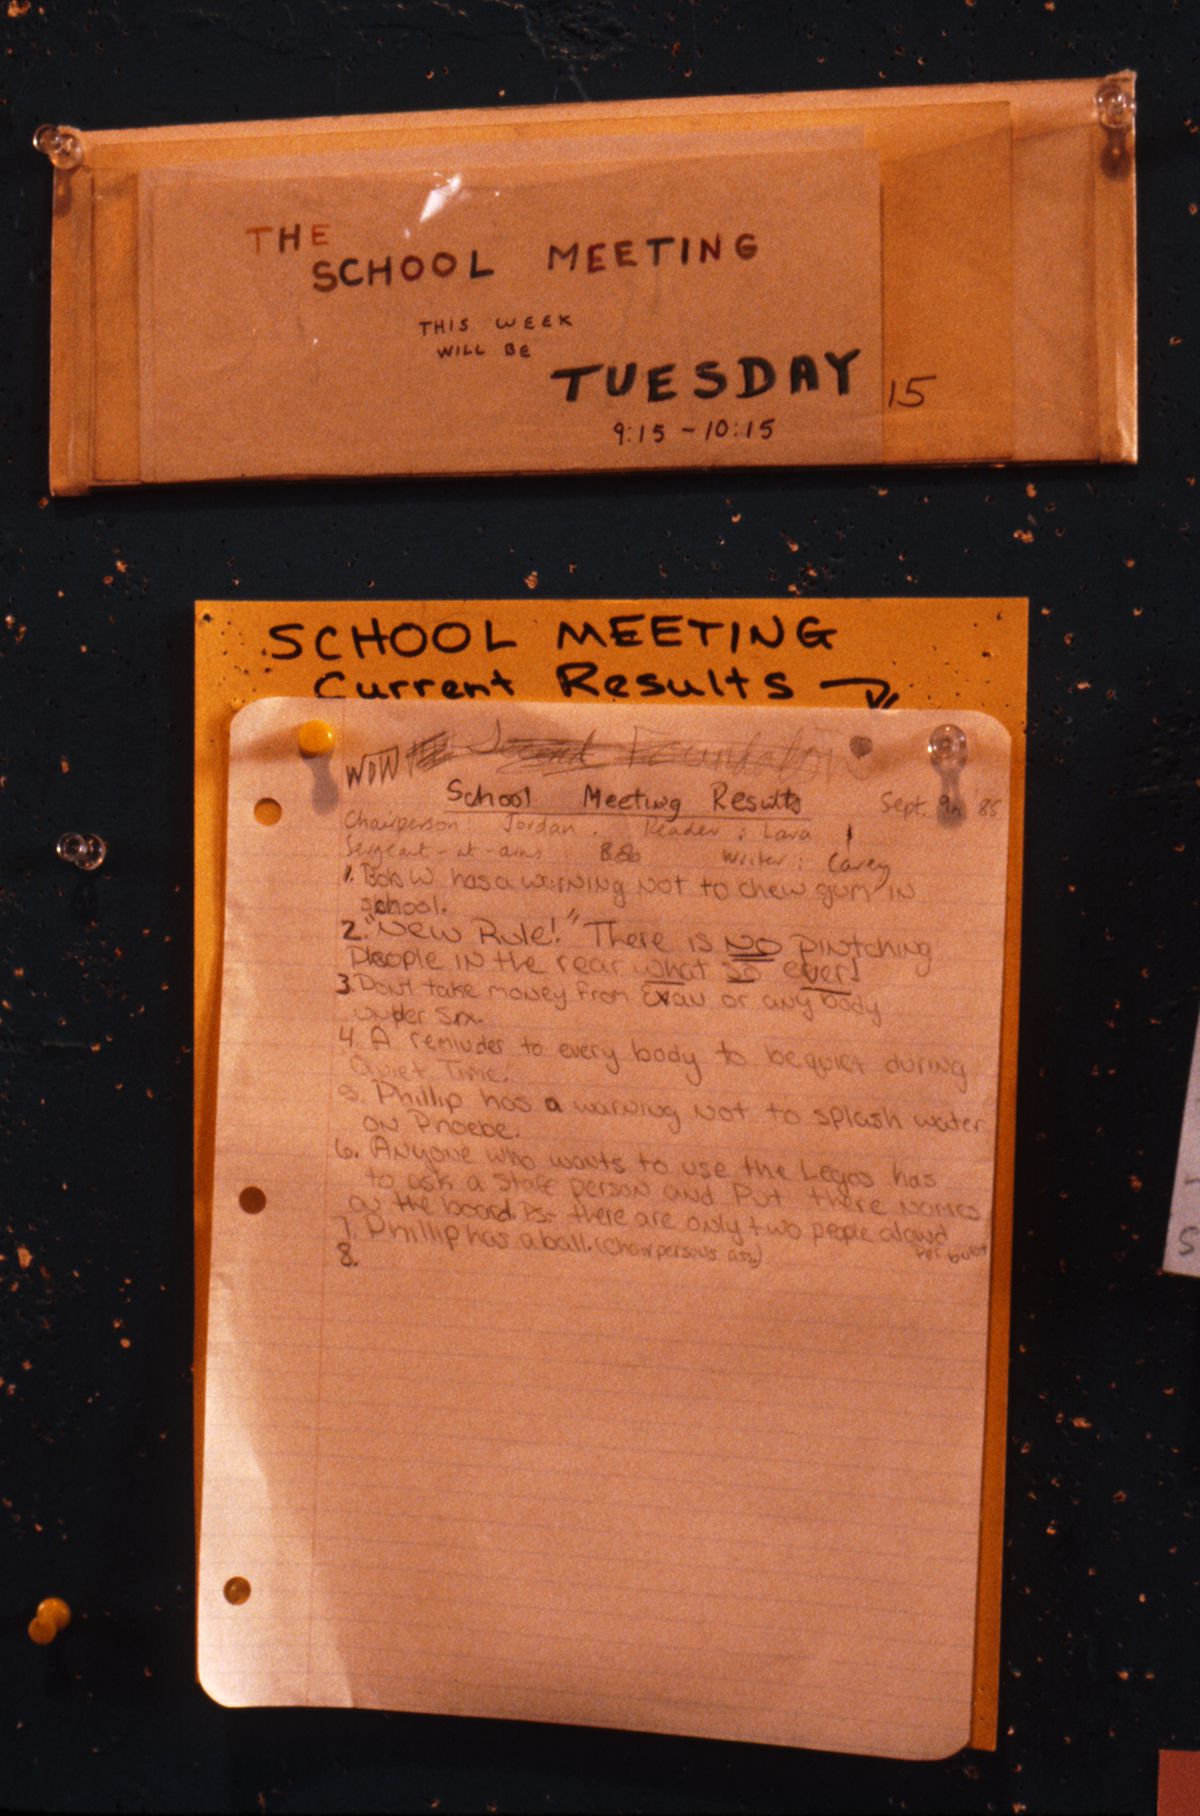 THE
SCHOOL MEETING
THIS WEEK
WILL BE
TUESDAY 15
9:15 - 10:15
SCHOOL MEETING
Current Results
WOW
School Meeting Results Sept. 85
Chairperson: Jordan. Reader: Lara
Sergeant-at-arms: Writer: Carey
1. Bob W has a warning not to chew gum in
school.
2. "New Rule!" There is NO pintching
People in the rear what so ever!
3. Dont take money from Evan or any body
under six.
4. A reminder to every body to be quiet during
Quiet Time.
5. Phillip has a warning not to splash water
on Phoebe.
6. Anyone who wants to use the Legos has
to ask a staff person and Put there names
on the board. Ps- there are only two people alowd
per
7. Phillip has a ball. (Chairpersons
8.